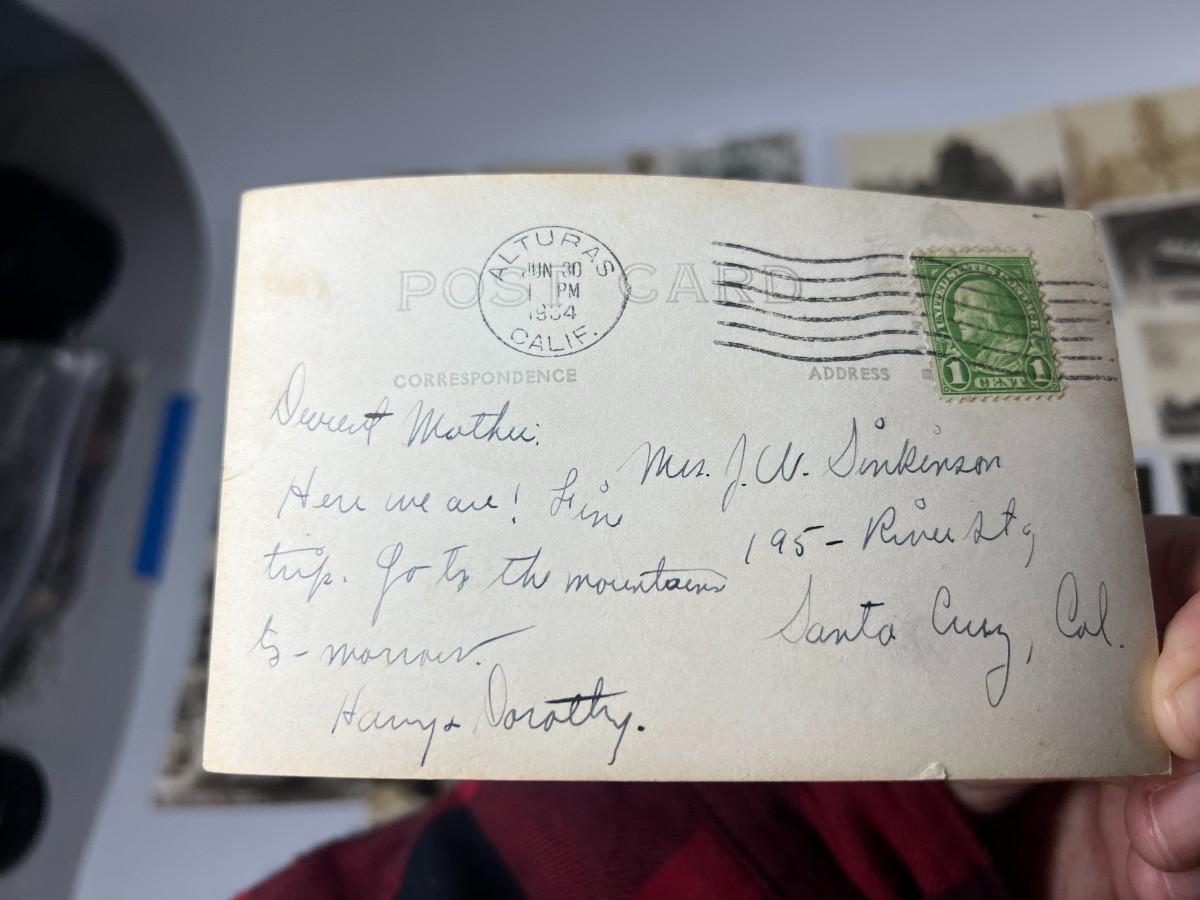 POST CARD
ALTURAS
JUN 30
1 PM
1934
CALIF.
UNITED STATES POSTAGE
1 CENT 1
CORRESPONDENCE
ADDRESS
Dearest Mother:
Here we are! Fine
trip. Go to the mountains
to-morrow.
Harry & Dorothy.
Mrs. J. W. Sinkinson
195- River St,
Santa Cruz, Cal.